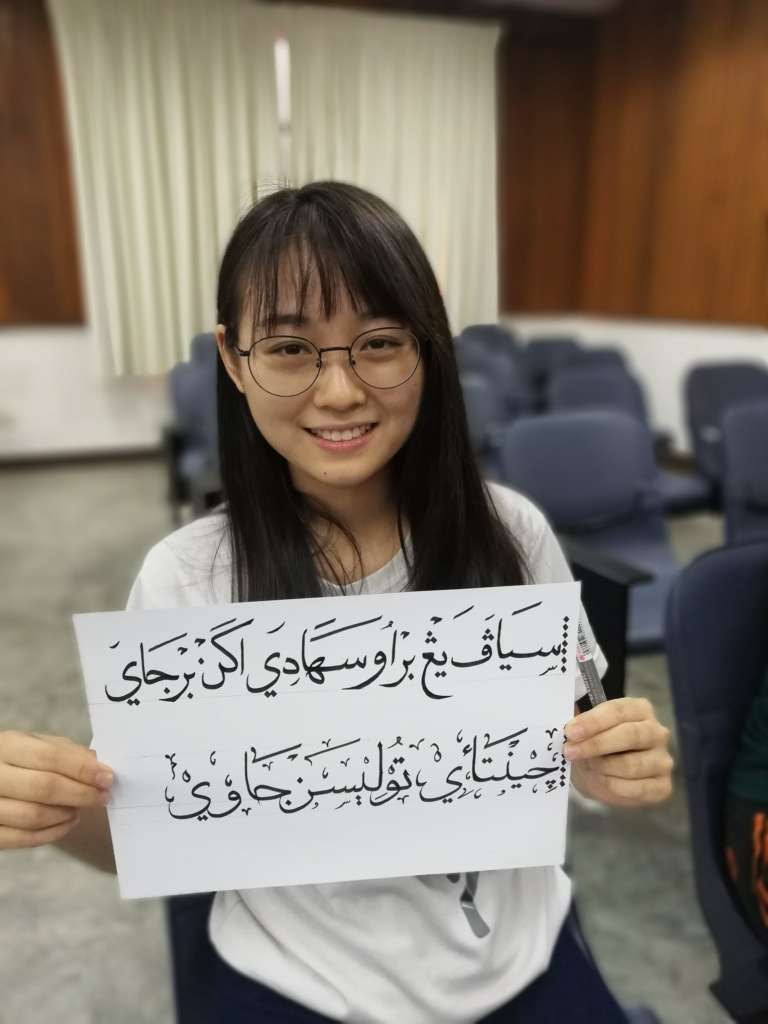 سِيَاڤَ يَڠْ بَرْاُوسَهَادِيَ اَکَنْ بَرْجَايَ
چِينْتَاءِيْ تُوْلِيسَنْ جَاوِيْ